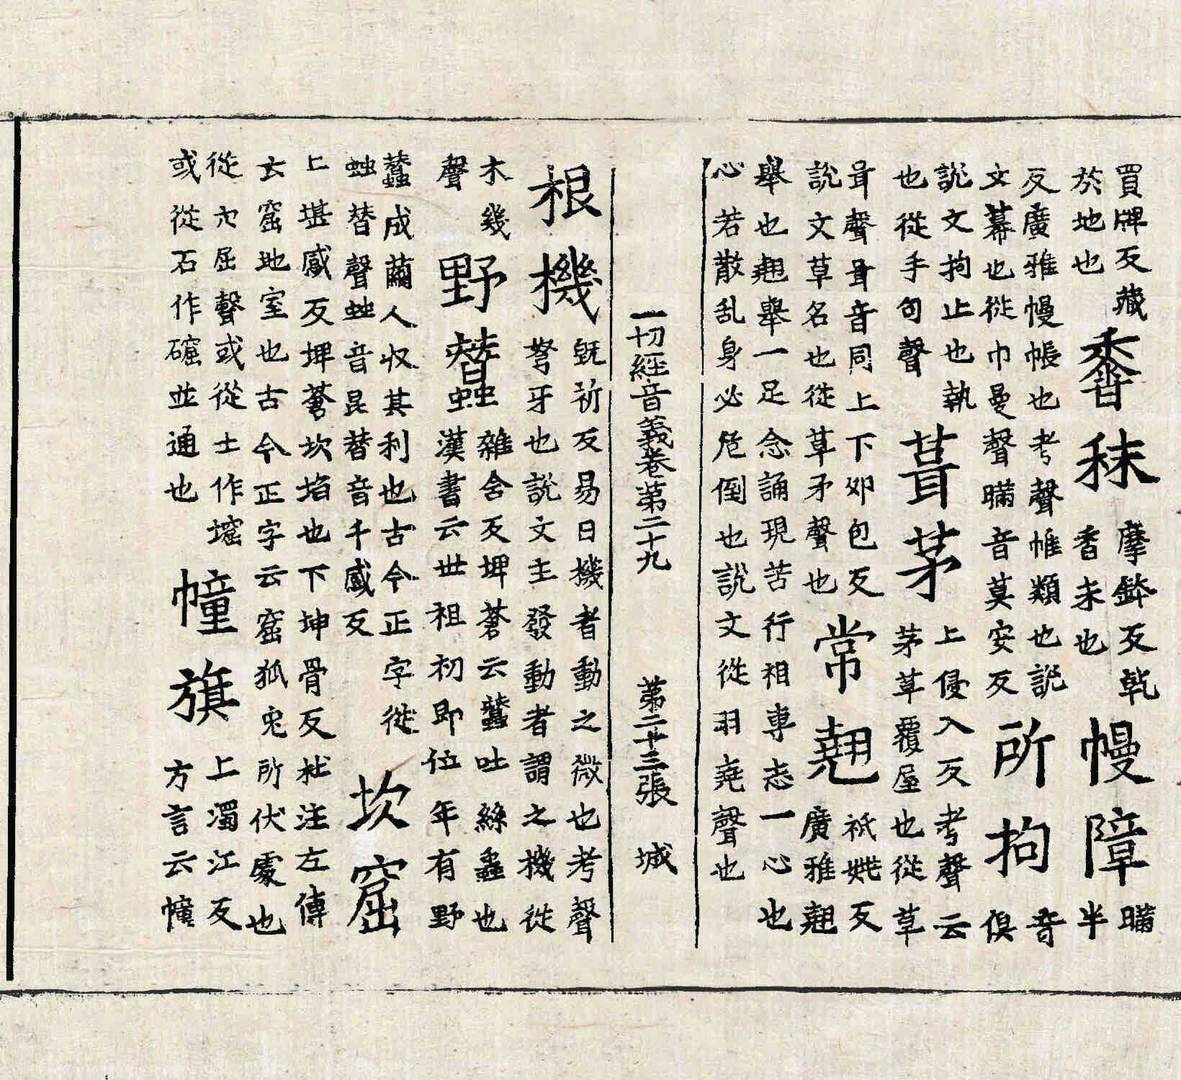 買牌反藏
於地也
香秣
摩鉢反乾
香末也
幔障
瞞
半
反廣雅幔帳也考聲帷類也說
文幕也從巾曼聲瞞音莫安反
所拘
音
俱
說文拘止也執
也從手句聲
葺茅
上侵入反考聲云
茅草覆屋也從草
咠聲咠音同上下卯包反
說文草名也從草矛聲也
常翹
祇姚反
廣雅翹
舉也翹舉一足念誦現苦行相專志一心也
心若散乱身必危倒也說文從羽堯聲也
一切經音義卷第二十九 第二十三張 城
根機
既祈反易曰機者動之微也考聲
弩牙也說文主發動者謂之機從
木幾
聲
野蠶
雜含反埤蒼云蠶吐絲蟲也
漢書云世祖初即位年有野
蠶成繭人収其利也古今正字從
䖵朁聲䖵音昆朁音千感反
坎窟
上堪感反埤蒼坎埳也下坤骨反杜注左傳
云窟地室也古今正字云窟狐兔所伏處也
從穴屈聲或從土作
或從石作並通也
幢旗
上濁江反
方言云幢